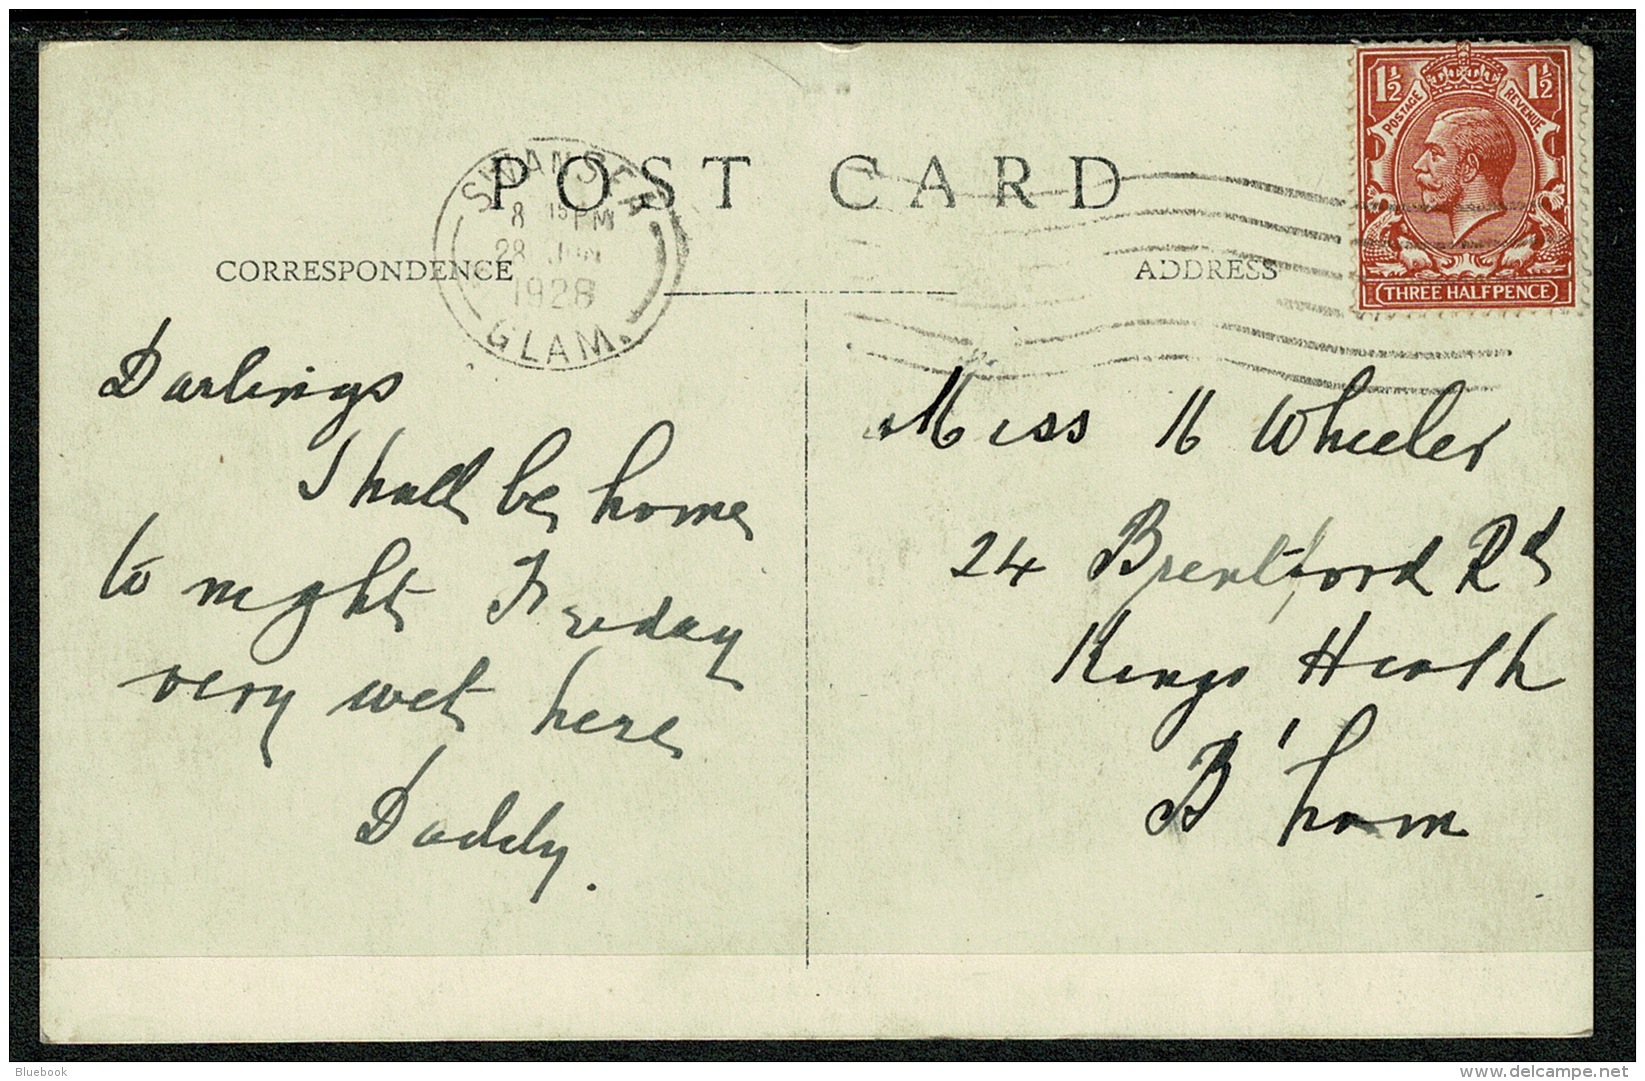 POST CARD
SWANSEA
8 15 PM
28 JUN
1928
GLAM.
CORRESPONDENCE
ADDRESS
1½ 1½
POSTAGE REVENUE
THREE HALFPENCE
Darlings
I shall be home
to night Friday
very wet here
Daddy.
Miss K Wheeler
24 Brentford Rd
Kings Heath
B'ham
Bluebook
www.delcampe.net